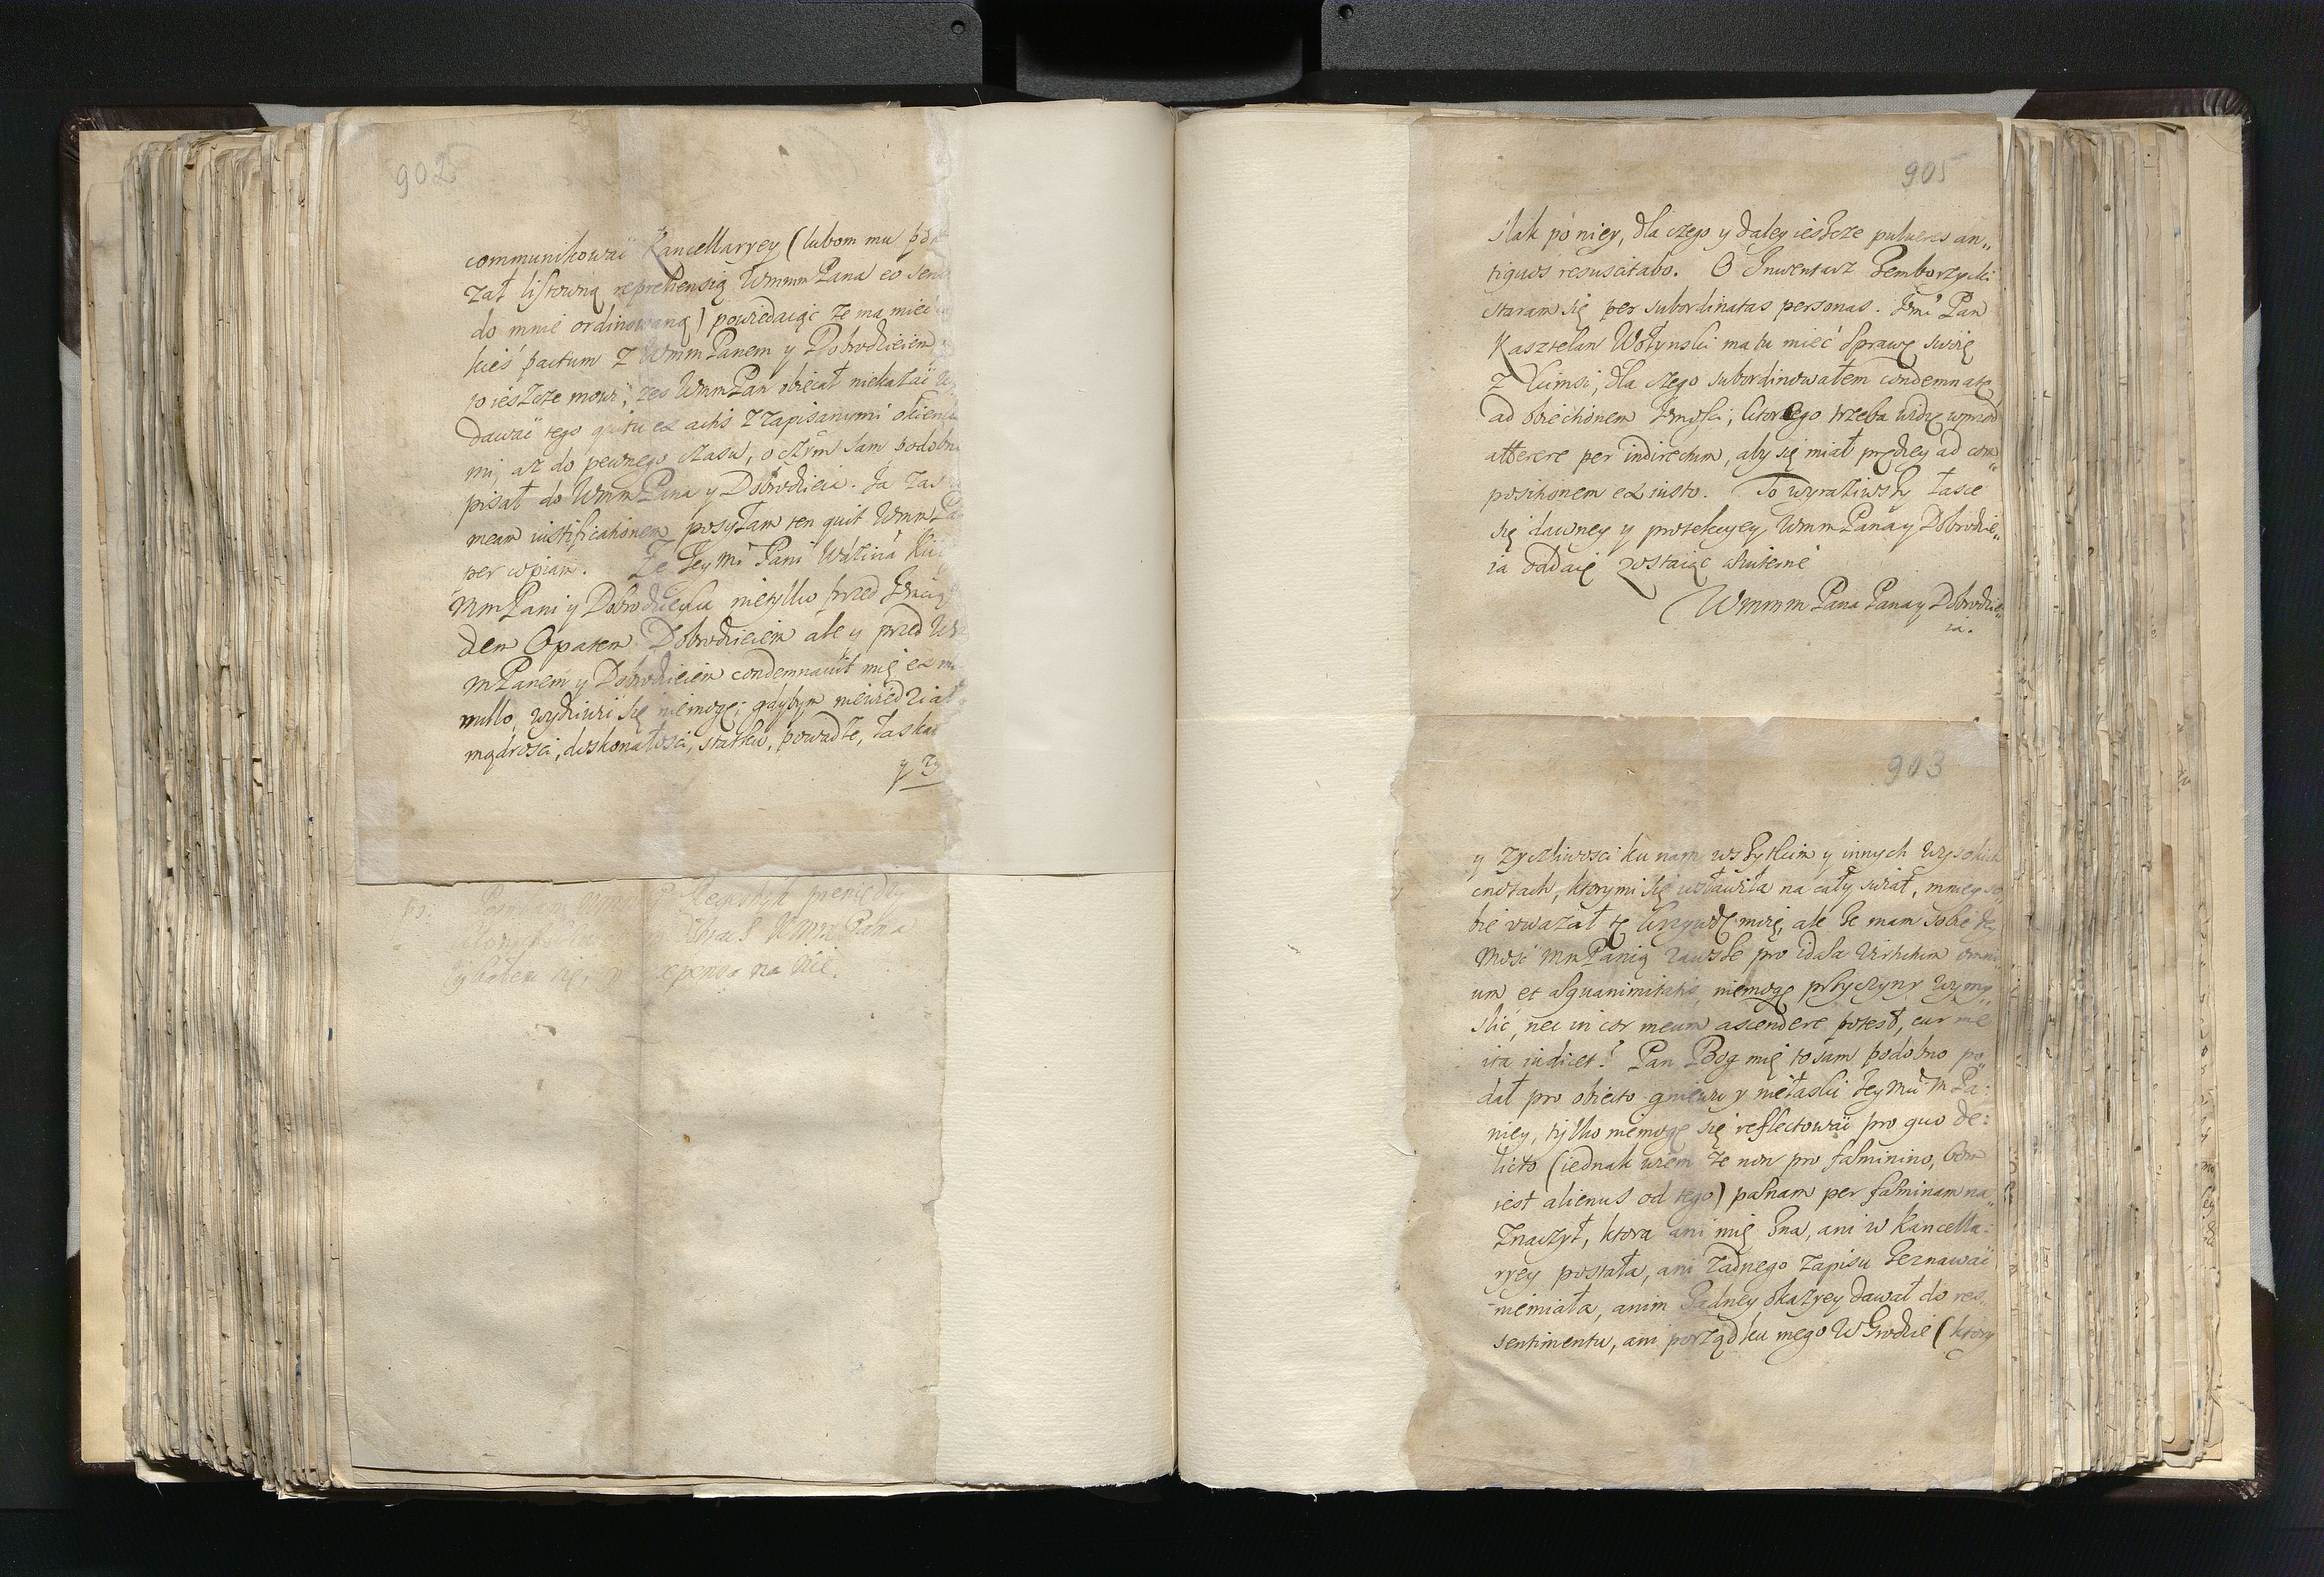 902
communikowaĉ Kancellaryey (lubom mu
zał listowną reprehensią WmmPana eo
do mnie ordinowaną) powiedaiąc że ma mieć
kieś pactum z WmmPanem y Dobrodzieiem
to ieszcze mowi, żeś WmmPan obiecał niekazać
dawać tego quitu ex actis z zapisanymi
mi, aż do pewnego czasu, o czym sam podobno
pisał do WmmPana y Dobrodzieia. Ja zaś
meam iustificationem posyłam ten quit Wmm
per copiam. Że Jey Mć Pani
MmPani y Dobrodzieyka nietylko przed
dem Opatem Dobrodzieiem ale y przed
MPanem y Dobrodzieiem condemnavit mię ex
nullo, wydziwić się niemogę; gdybym niewiedział
mądrości, doskonałości, statku, powadze,
y zy
ps:
WmmPana
się, na nie.
905
slak po niey, dla czego y daley ieszcze pulueres an„
tiquos resuscitabo. O Inwentarz Temborzycki
staram się per subordinatas personas. Jmć Pan
Kasztelan Wołynski ma tu mieć sprawę swoię
z kimsi, dla czego subordinowałem condemnatę
ad obiectionem Jmości, ktorego trzeba widzę wprzod
atterere per indirectum, aby się miał prędzey ad com„
positionem ex iusto. To wyraziwszy łasce
się dawney y protekcyey WmmPana y Dobrodzie„
ia oddaię zostaiąc
Wmmm Pana Pana y Dobrodzie„
ia.
903
y życzliwosci ku nam wszytkim y innych wysokich
cnotach, ktorymi się wsławiła na cały swiat, mniey so„
bie uważał tę krzywdę moię, ale że mam sobie Jey
Mość MmPanią zawsze pro idaea virtutum omni„
um et aequanimitatis, niemogę przyczyny wymy„
slić, nec in cor meum ascendere potest, cur me
ita iudicet? Pan Bog mię to sam podobno po„
dał pro obiecto gniewu y niełaski Jey Mci M Pa:
niey, tylko niemogę się reflectować pro quo de:
licto (iednak wiem że non pro faeminino, bom
iest alienus od tego) paenam per faeminam na„
znaczył, ktora ani mię zna, ani w Kancella:
ryey postała, ani żadnego zapisu zeznawać
niemiała, anim żadney okazyey dawał do res„
sentimentu, ani porządku mego w Grodzie (ktory